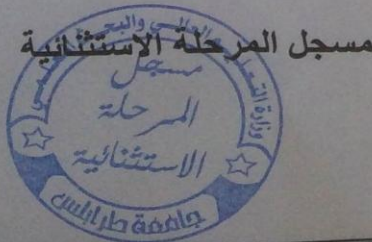 مسجل المرحلة الاستثنائية
وزارة التعليم العالي والبحث
مسجل
المرحلة
الاستثنائية
جامعة طرابلس